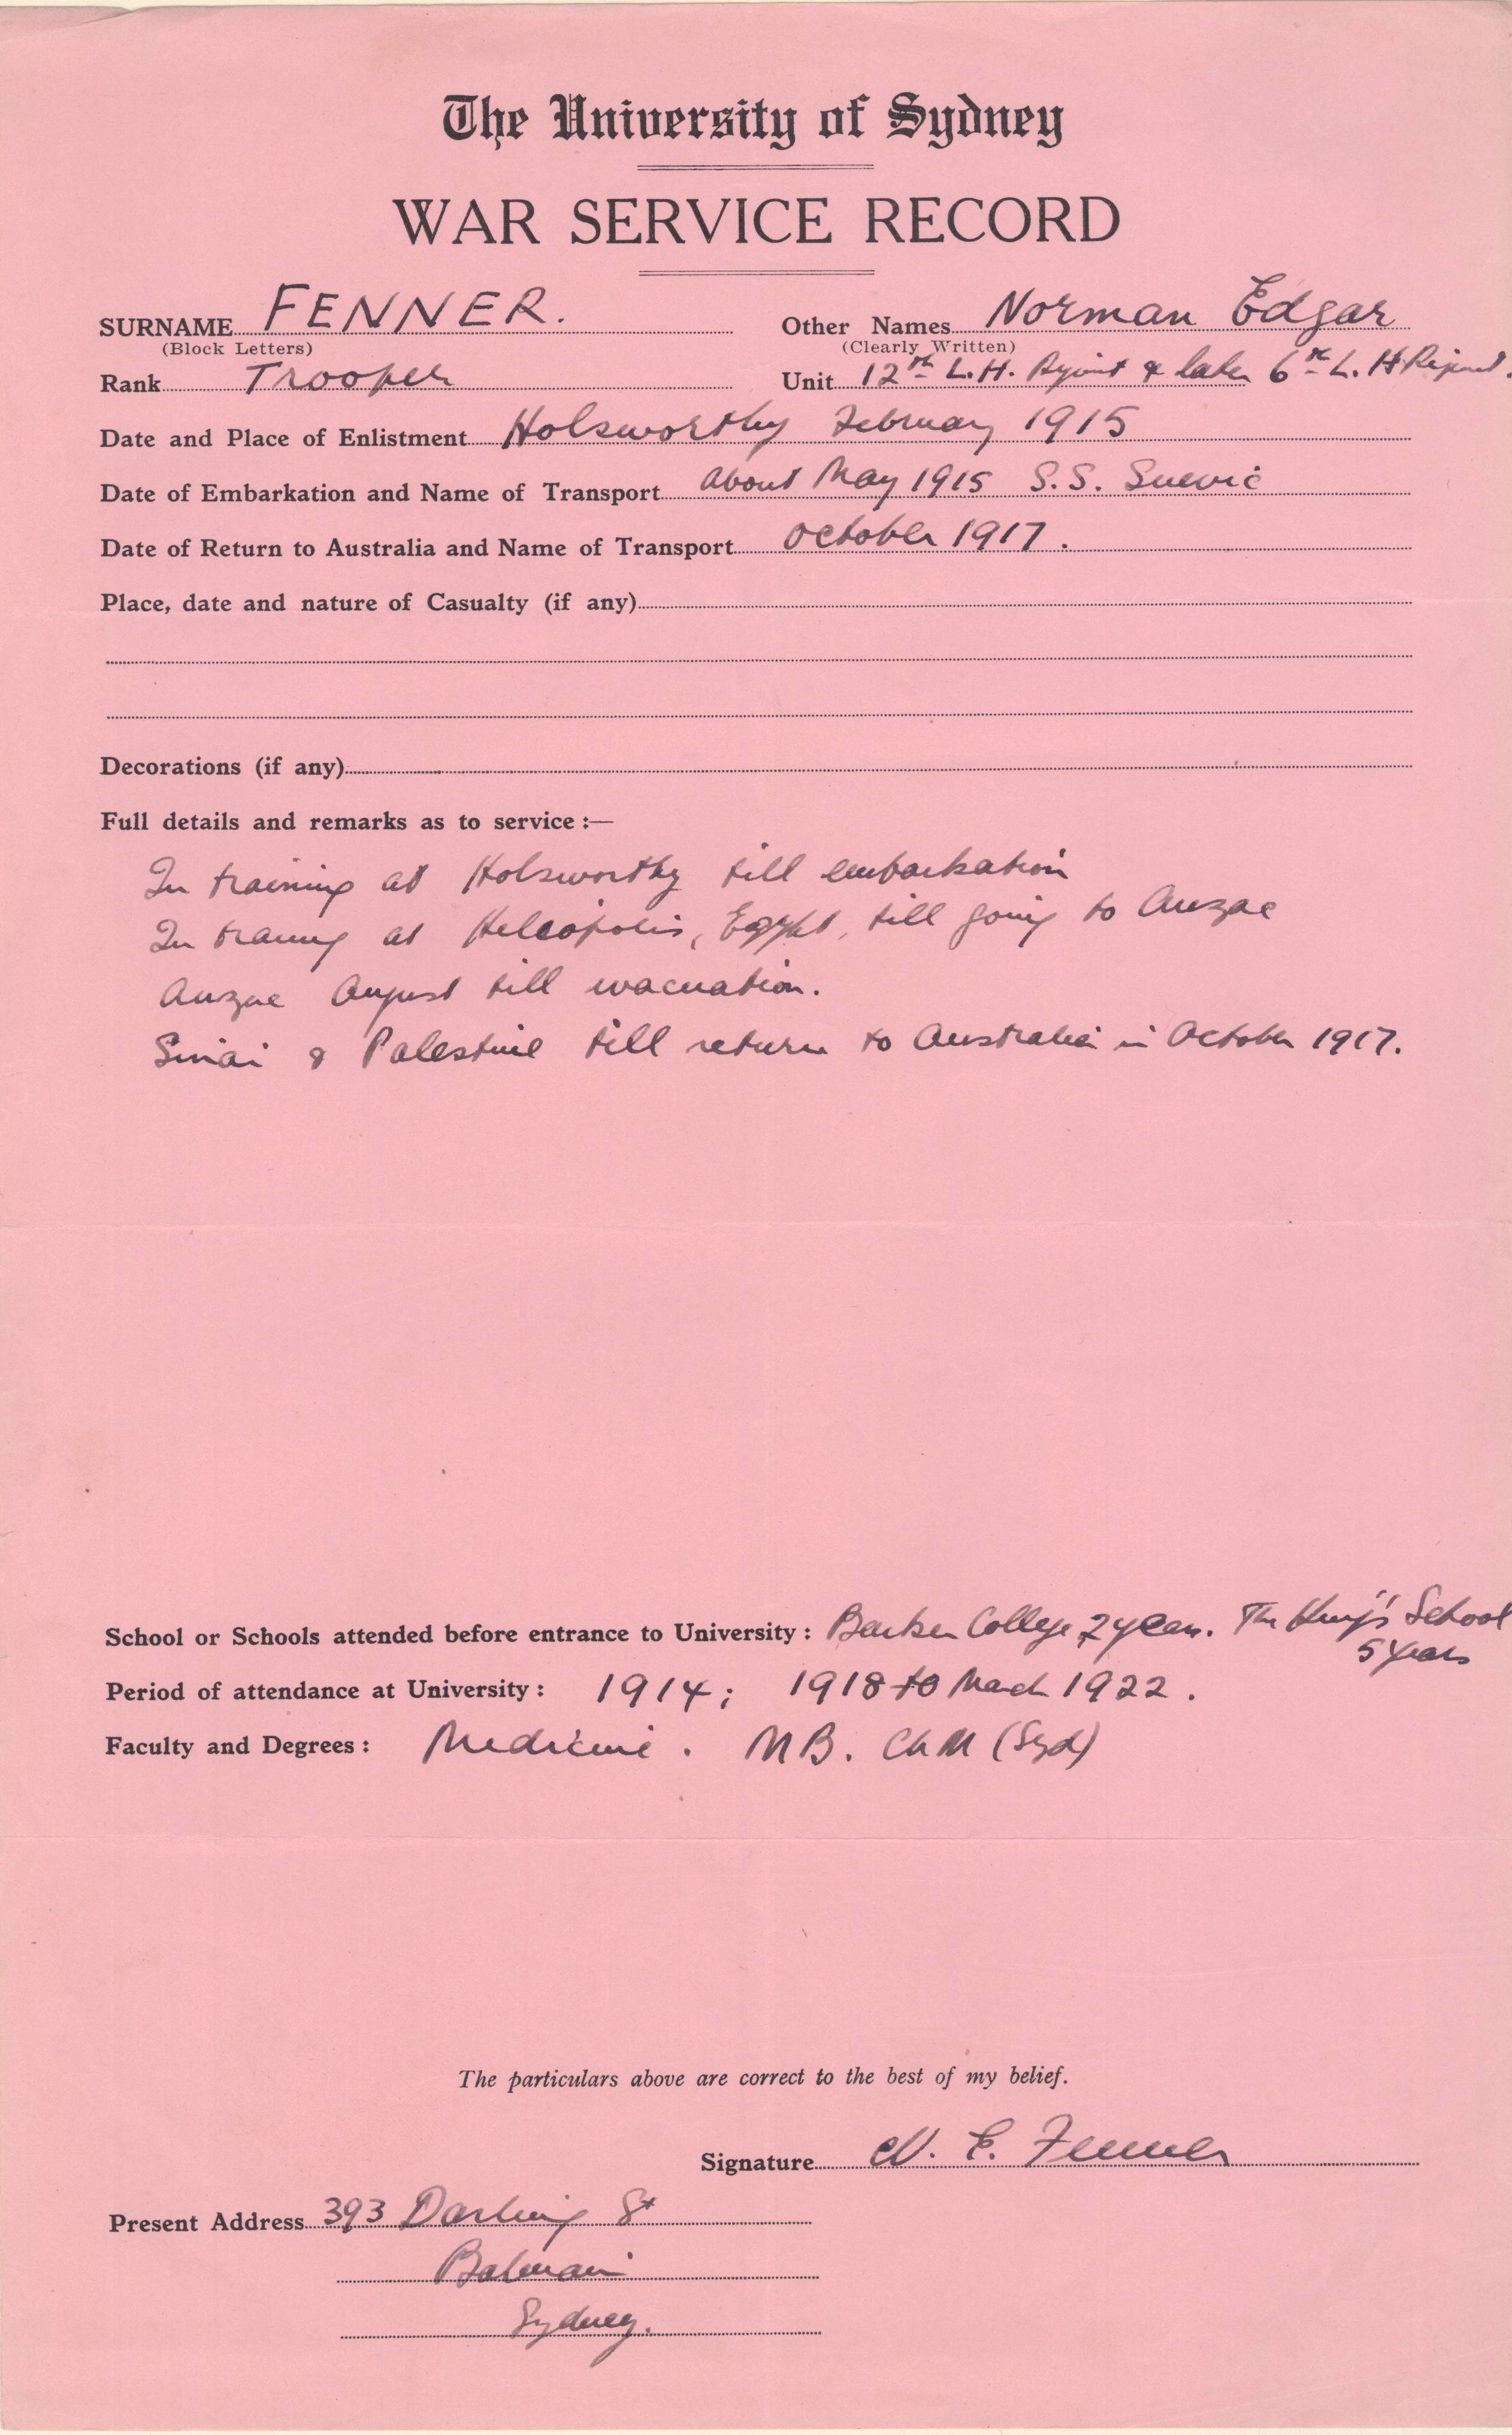 The University of Sydney
WAR SERVICE RECORD
SURNAME FENNER. Other Names Norman Edgar
(Block Letters) (Clearly Written)
Rank Trooper Unit 12th L.H. Regiment & later 6th L.H Regiment.
Date and Place of Enlistment Holsworthy February 1915
Date of Embarkation and Name of Transport about May 1915 S.S. Suevic
Date of Return to Australia and Name of Transport October 1917.
Place, date and nature of Casualty (if any)
Decorations (if any)
Full details and remarks as to service :—
In training at Holsworthy till embarkation
In training at Heliopolis, Egypt, till going to Anzac
Anzac August till evacuation.
Sinai & Palestine till return to Australia in October 1917.
School or Schools attended before entrance to University : Barker College 2 years. The King's School
5 years
Period of attendance at University : 1914; 1918 to March 1922.
Faculty and Degrees : Medicine. MB. ChM (Syd)
The particulars above are correct to the best of my belief.
Signature N. E. Fenner
Present Address 393 Darling St
Balmain
Sydney.